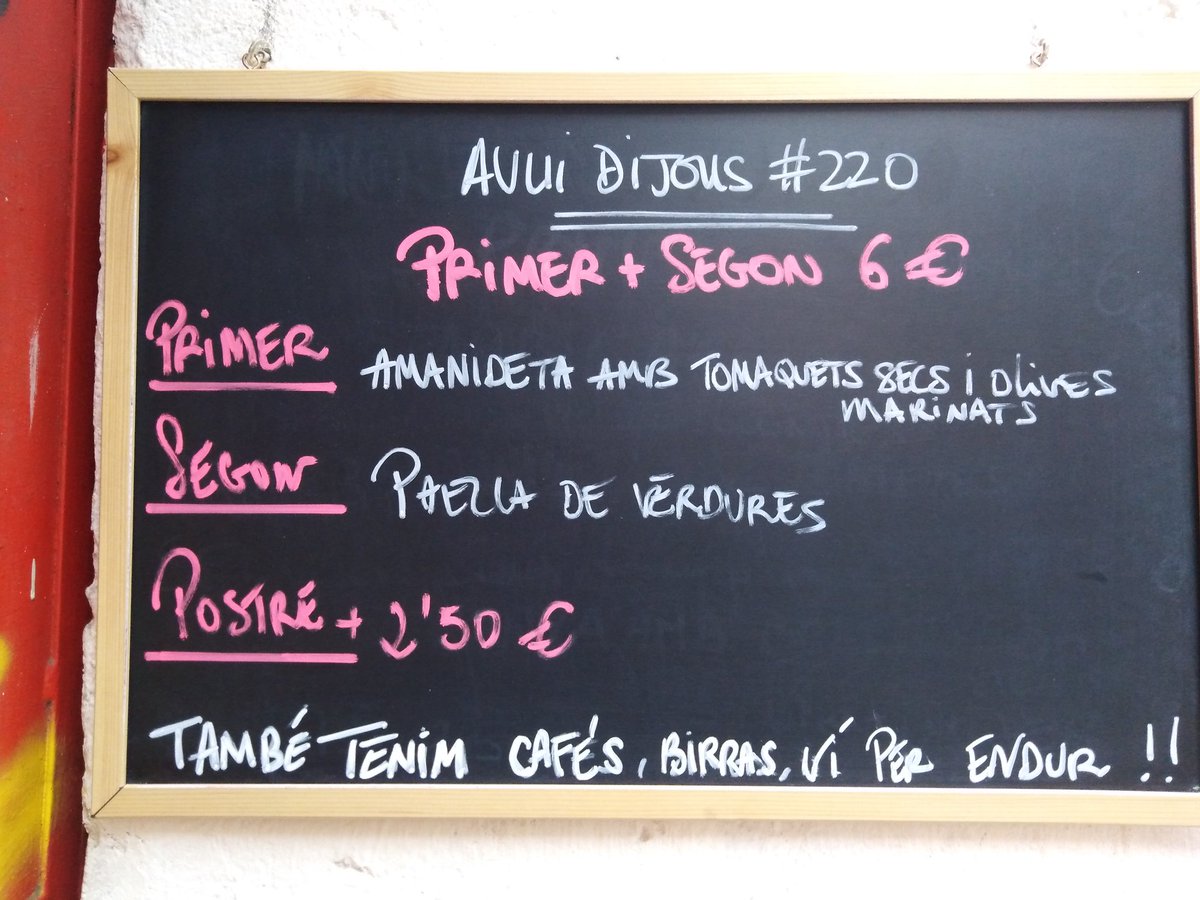 AVUI DIJOUS #220
PRIMER + SEGON 6 €
PRIMER AMANIDETA AMB TOMAQUETS SECS i OLIVES
MARINATS
SEGON PAELLA DE VERDURES
POSTRE + 2'50 €
TAMBÉ TENIM CAFÉS, BIRRAS, VÍ PER ENDUR !!